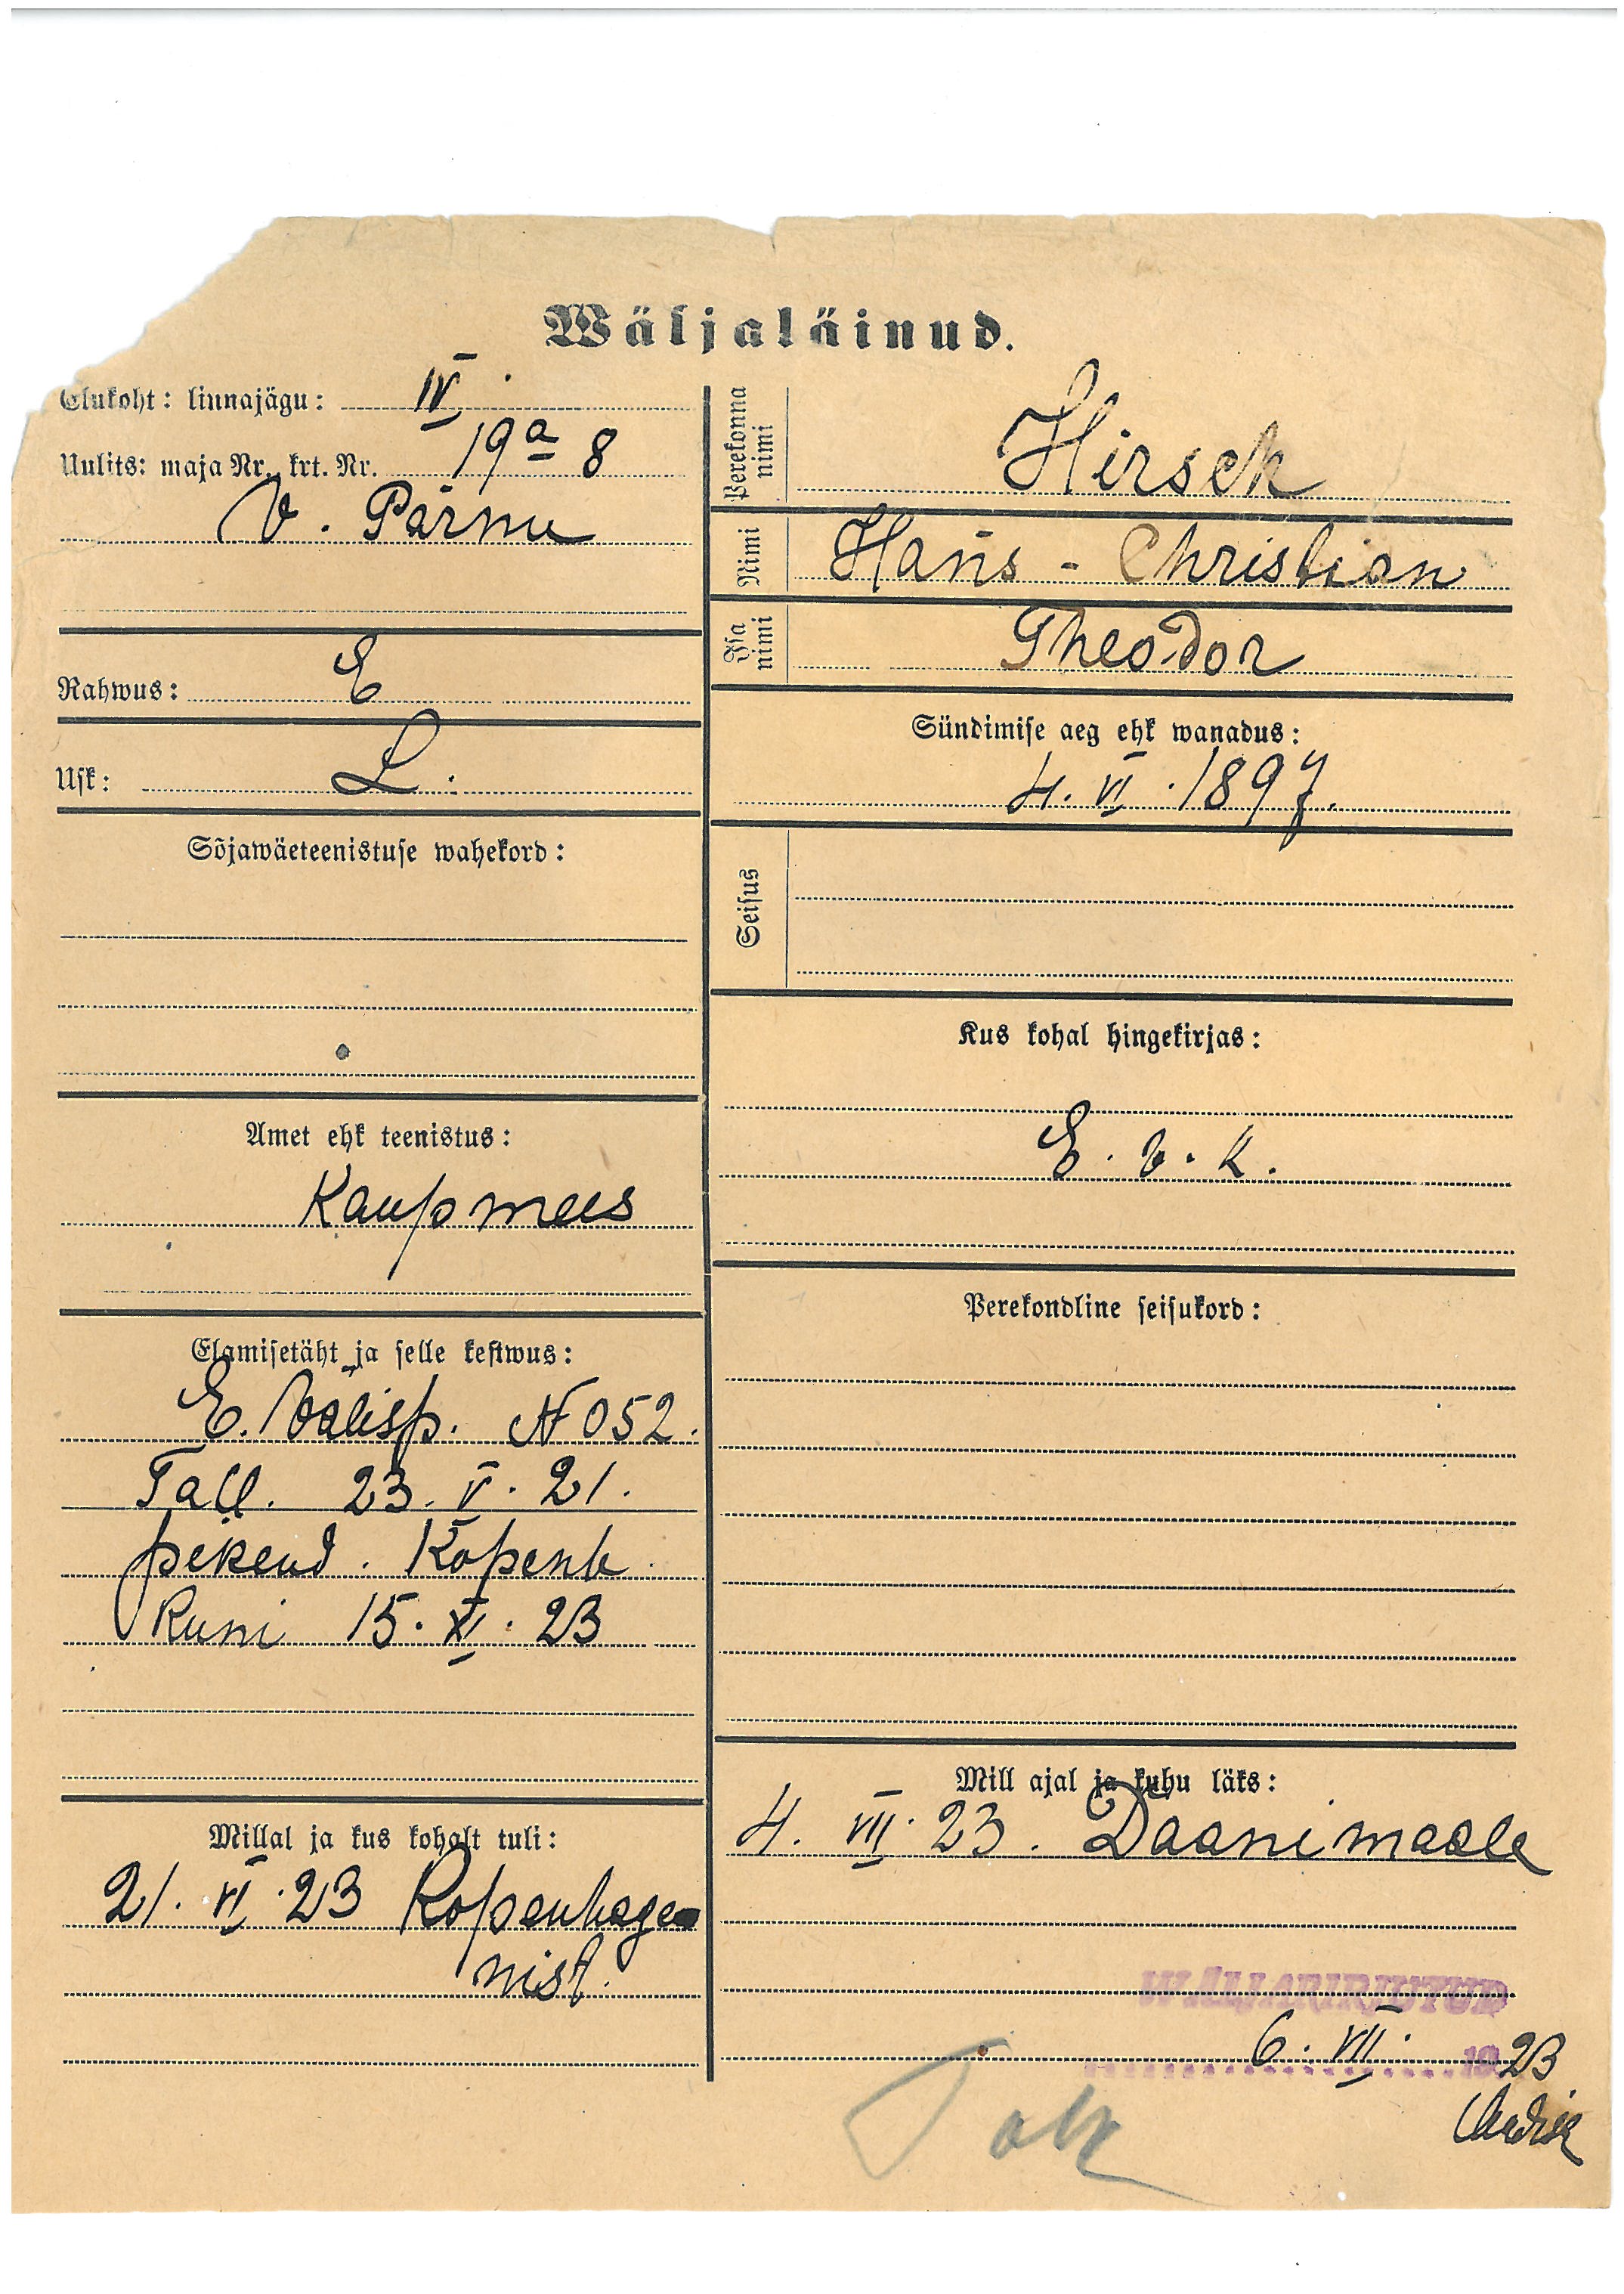 Wäljaläinud.
Elukoht: linnajägu: IV
Uulits: maja Nr. krt. Nr. 19a 8
V. Pärnu
Rahwus: E
Usk: L.
Sõjawäeteenistuse wahekord:
Amet ehk teenistus:
Kaupmees
Elamisetäht ja selle kestwus:
E. Välisp. N 052.
Tall. 23. V. 21.
pikend. Kopenh.
kuni 15. XI. 23
Millal ja kus kohalt tuli:
21. VI. 23 Kopenhage
nist.
Perekonna nimi
Hirsch
Nimi
Hans - Christian
Isa nimi
Theodor
Sündimise aeg ehk wanadus:
4. VI. 1897.
Seisus
Kus kohal hingekirjas:
E. v. k.
Perekondline seisukord:
Mill ajal ja kuhu läks:
4. VII. 23. Daanimaale
WÄLJAKIRJUTUD
6. VII. 1923